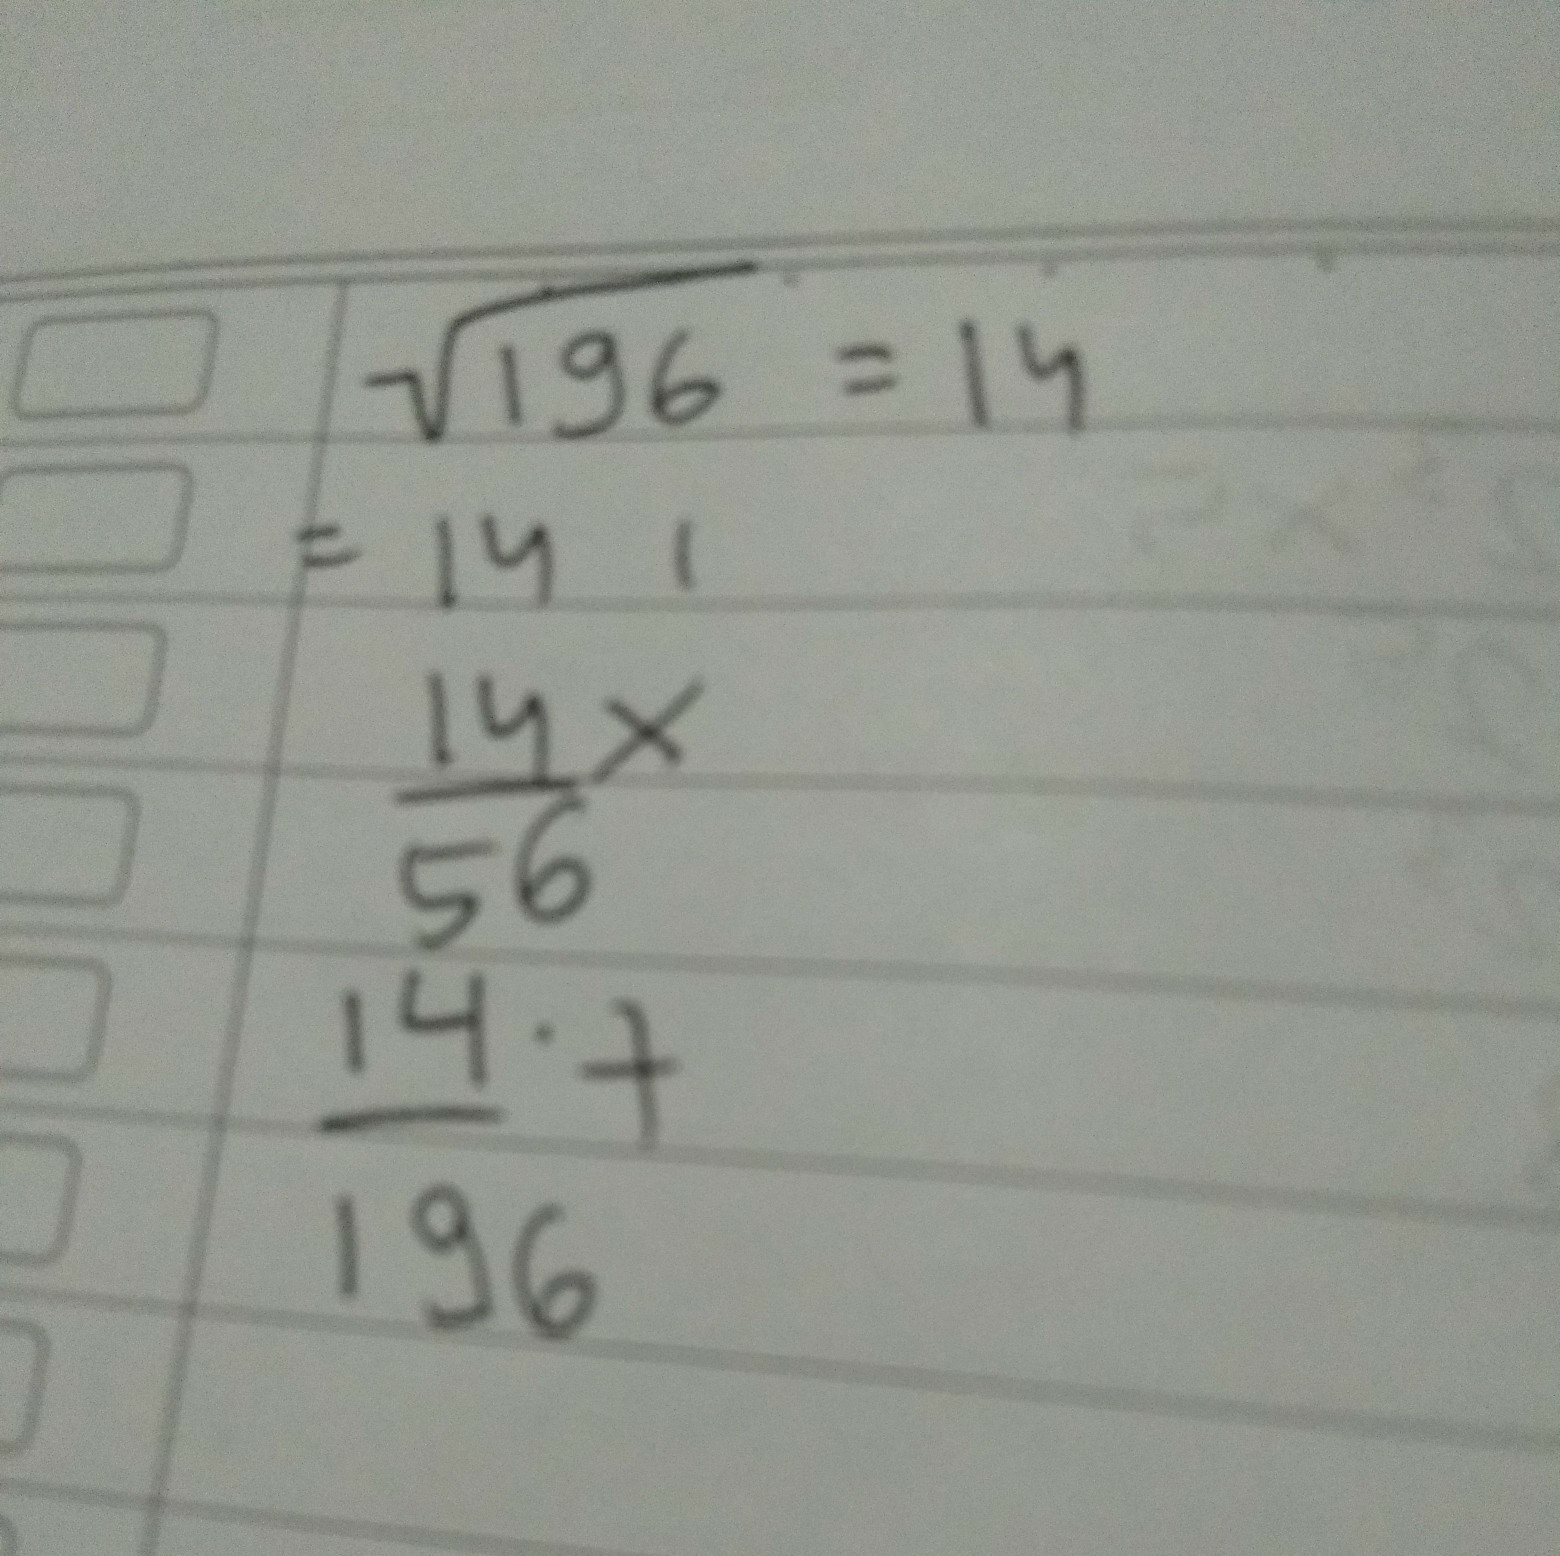 √196 = 14
= 14 1
14 x
56
14 · +
196